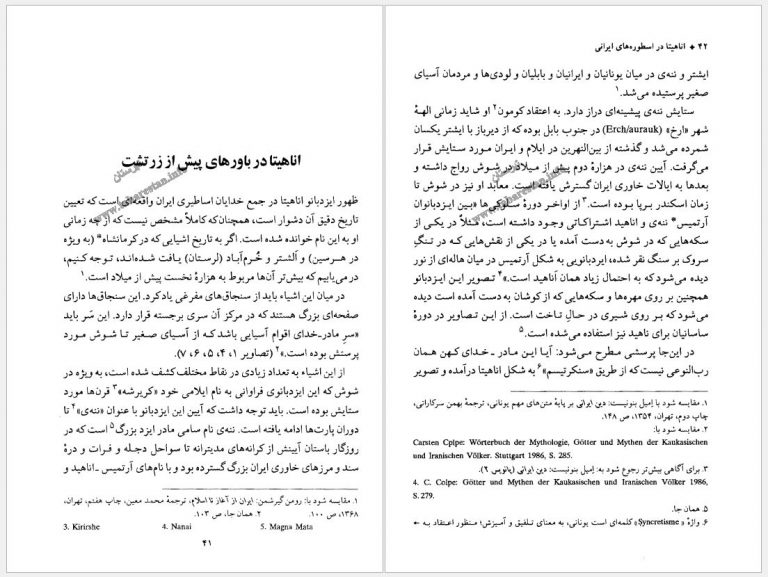 اناهیتا در باورهای پیش از زرتشت
ظهور ایزدبانو اناهیتا در جمع خدایان اساطیری ایران واقعه‌ای است که تعیین
تاریخ دقیق آن دشوار است، همچنان‌که کاملاً مشخص نیست که از چه زمانی
او به این نام خوانده شده است. اگر به تاریخ اشیایی که در کرمانشاه* (به ویژه
در هرسین) و اَلشتر و خُرم‌آباد (لرستان) یافت شده‌اند، توجه کنیم،
در می‌یابیم که بیش‌تر آن‌ها مربوط به هزارهٔ نخست پیش از میلاد است.۱
در میان این اشیاء باید از سنجاق‌های مفرغی یادکرد. این سنجاق‌ها دارای
صفحه‌ای بزرگ هستند که در مرکز آن سری برجسته قرار دارد. این سَر باید
«سرِ مادر ـ خدای اقوام آسیایی باشد که از آسیای صغیر تا شوش مورد
پرستش بوده است.»۲ (تصاویر ۱، ۴، ۵، ۶، ۷).
از این اشیاء به تعداد زیادی در نقاط مختلف کشف شده است، به ویژه در
شوش که این ایزدبانوی فراوانی به نام ایلامی خود «کریرشه»۳ قرن‌ها مورد
ستایش بوده است. باید توجه داشت که آیین این ایزدبانو با عنوان «ننه‌ی»۴ تا
دوران پارت‌ها ادامه یافته است. ننه‌ی نام سامی مادر ایزد بزرگ۵ است که در
روزگار باستان آیینش از کرانه‌های مدیترانه تا سواحل دجله و فرات و درهٔ
سند و مرزهای خاوری ایران بزرگ گسترده بود و با نام‌های آرتمیس ـ اناهید و
۱. مقایسه شود با: رومن گیرشمن: ایران از آغاز تا اسلام، ترجمهٔ محمد معین، چاپ هفتم، تهران،
۱۳۶۸، ص ۱۰۰. ۲. همان جا، ص ۱۰۳.
3. Kirirshe 4. Nanai 5. Magna Mata
۴۱
۴۲ ♦ اناهیتا در اسطوره‌های ایرانی
ایشتر و ننه‌ی در میان یونانیان و ایرانیان و بابلیان و لودی‌ها و مردمان آسیای
صغیر پرستیده می‌شد.۱
ستایش ننه‌ی پیشینه‌ای دراز دارد. به اعتقاد کومون۲ او شاید زمانی الههٔ
شهر «ارخ» (Erch/aurauk) در جنوب بابل بوده که از دیرباز با ایشتر یکسان
شمرده می‌شد و گذشته از بین‌النهرین در ایلام و ایران مورد ستایش قرار
می‌گرفت. آیین ننه‌ی در هزارهٔ دوم پیش از میلاد در شوش رواج داشته و
بعدها به ایالات خاوری ایران گسترش یافته است. معابد او نیز در شوش تا
زمان اسکندر برپا بوده است.۳ از اواخر دورهٔ سلوکی‌ها «بین ایزدبانوان
آرتمیس* ننه‌ی و اناهید اشتراکاتی وجود داشته است، مثلاً در یکی از
سکه‌هایی که در شوش به دست آمده یا در یکی از نقش‌هایی که در تنگِ
سروک بر سنگ نقر شده، ایردبانویی به شکل آرتمیس در میان هاله‌ای از نور
دیده می‌شود که به احتمال زیاد همان اَناهید است.»۴ تصویر این ایزدبانو
همچنین بر روی مهره‌ها و سکه‌هایی که از کوشان به دست آمده است دیده
می‌شود که بر روی شیری در حال تاخت است. از این تصاویر در دورهٔ
ساسانیان برای ناهید نیز استفاده می‌شده است.۵
در این‌جا پرسشی مطرح می‌شود: آیا این مادر ـ خدای کهن همان
رب‌النوعی نیست که از طریق «سنکرتیسم»۶ به شکل اناهیتا درآمده و تصویر
۱. مقایسه شود با اِمیل بنونیست: دین ایرانی بر پایهٔ متن‌های مهم یونانی، ترجمهٔ بهمن سرکاراتی،
چاپ دوم، تهران، ۱۳۵۴، ص ۱۴۸.
۲. مقایسه شود با:
Carsten Colpe: Wörterbuch der Mythologie, Götter und Mythen der Kaukasischen
und Iranischen Völker. Stuttgart 1986, S. 285.
۳. برای آگاهی بیش‌تر رجوع شود به: اِمیل بنونیست: دین ایرانی (پانویس ۲).
4. C. Colpe: Götter und Mythen der Kaukasischen und Iranischen Völker 1986,
S. 279.
۵. همان جا.
۶. واژهٔ «Syncretisme» کلمه‌ای است یونانی، به معنای تلفیق و آمیزش؛ منظور اعتقاد به ←